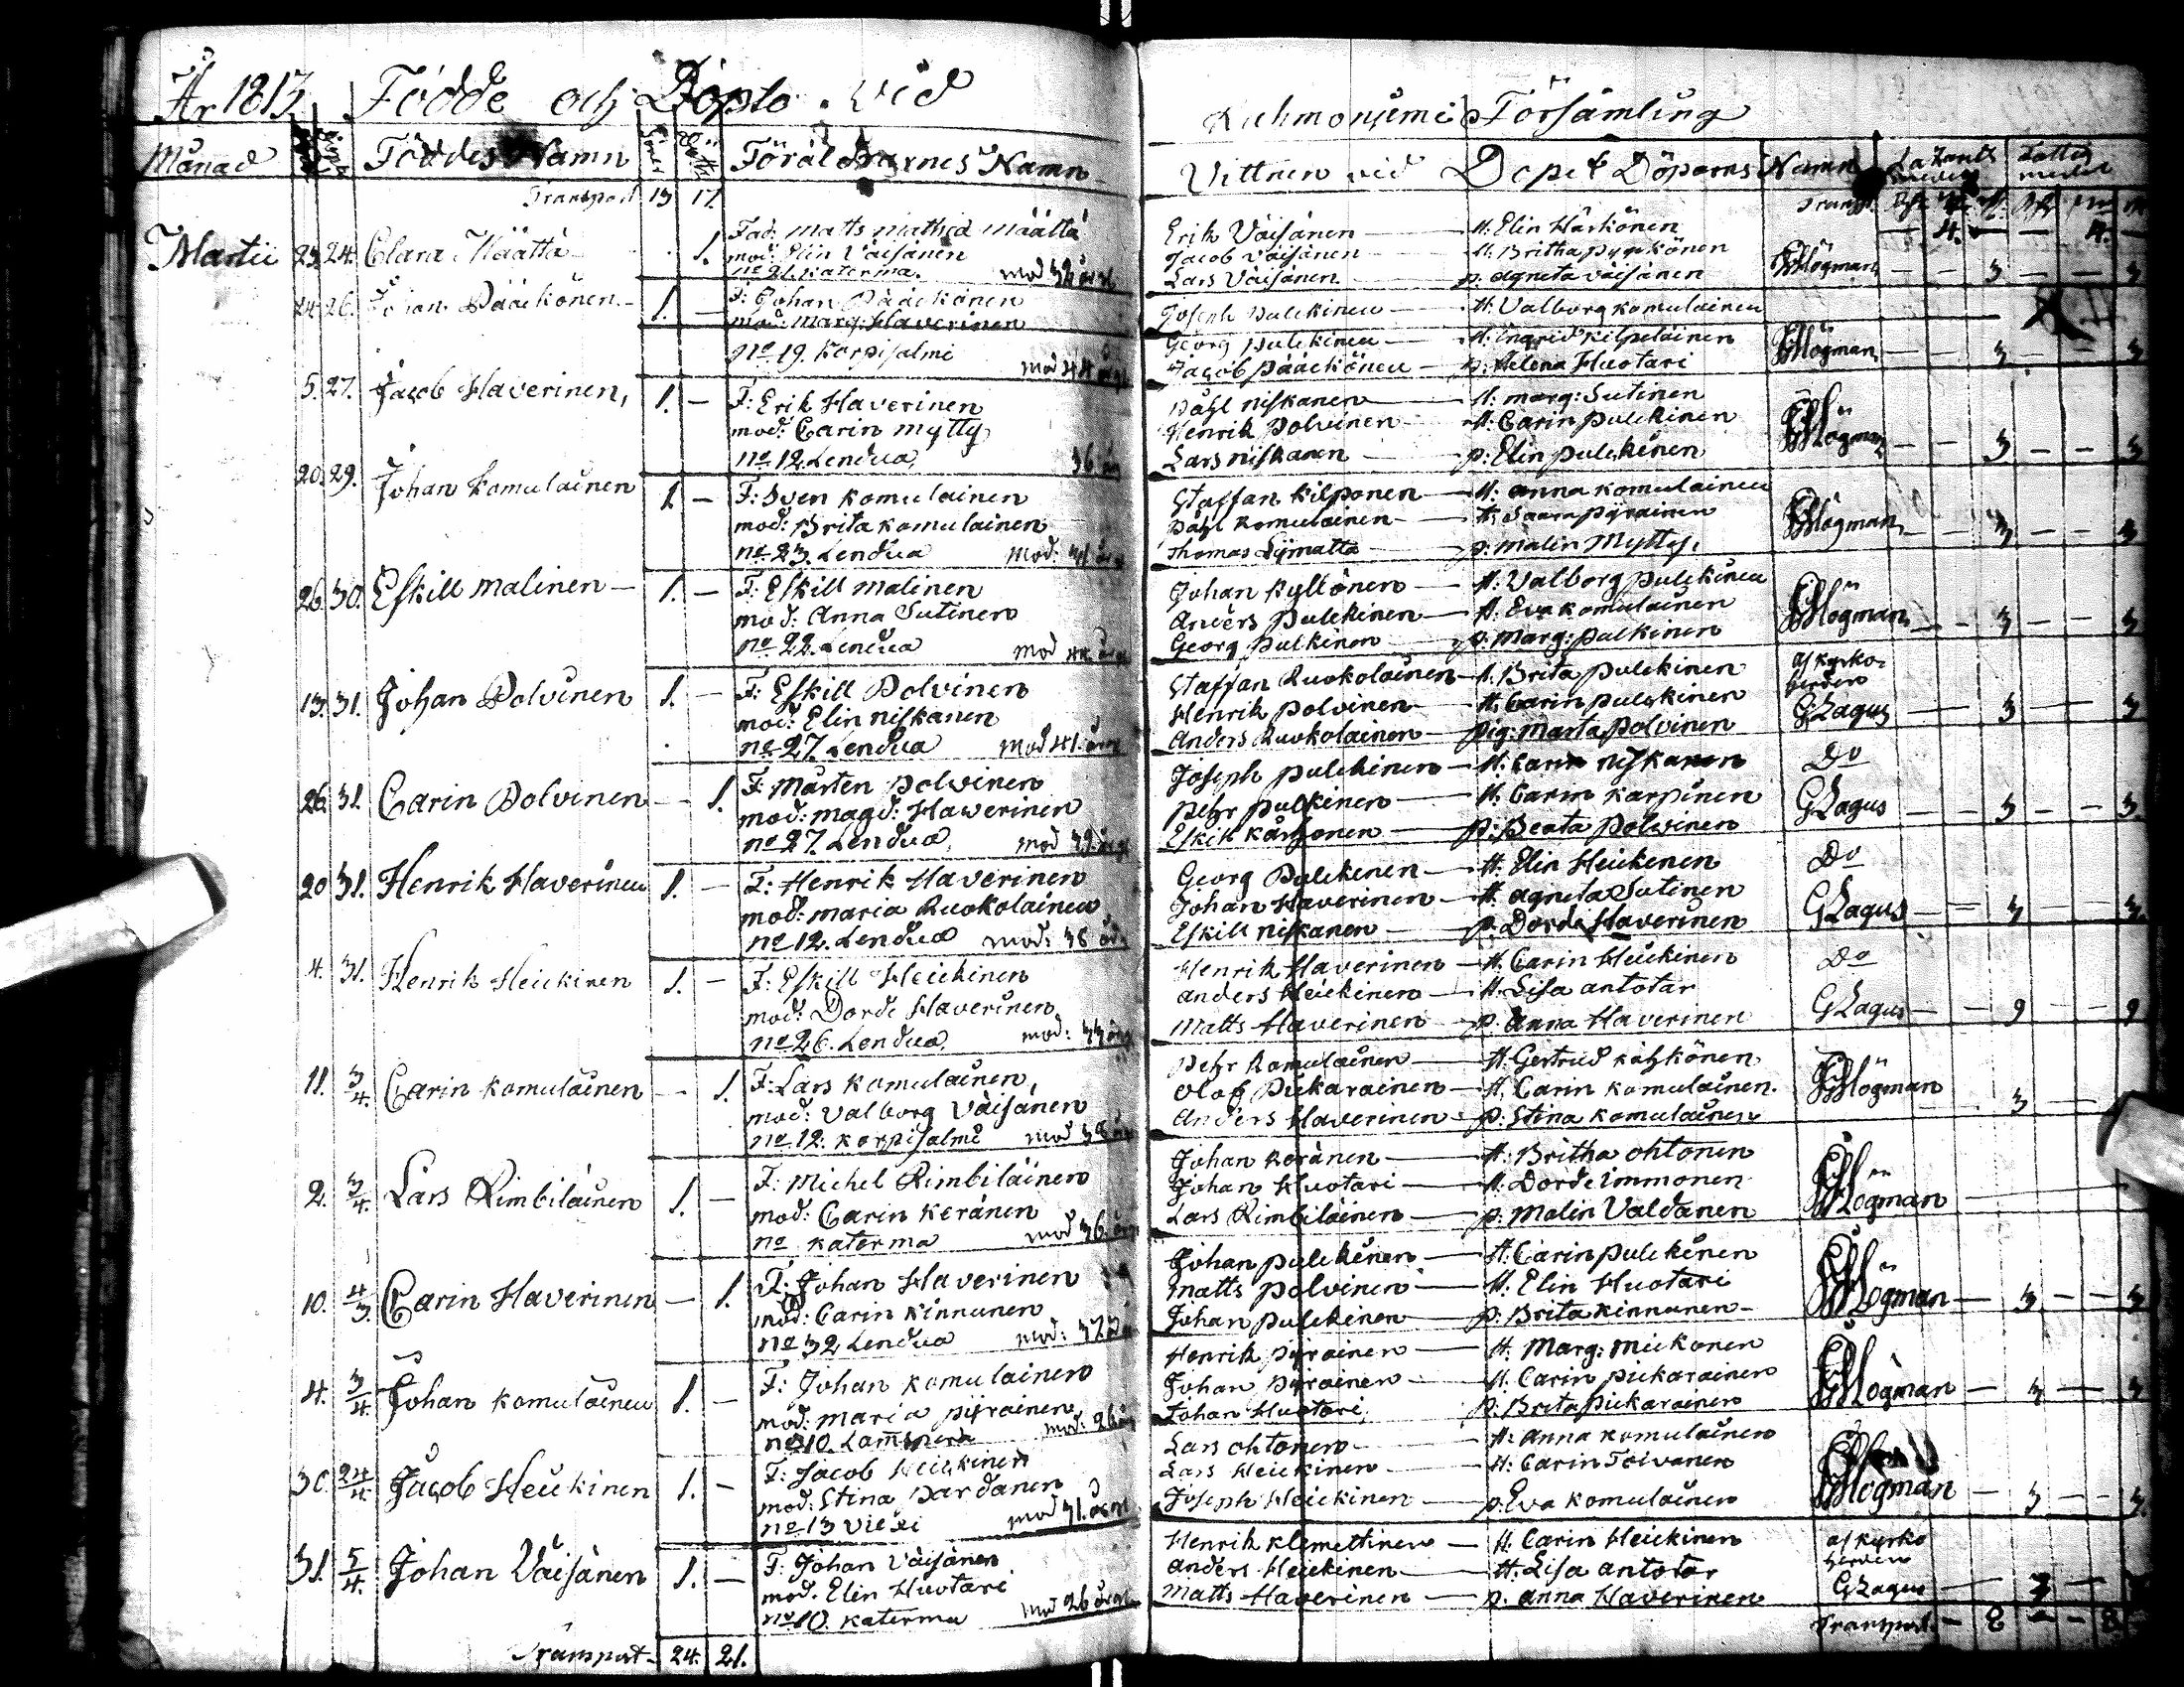 År 1813. Födde och Döpte vid
Månad Födde Döpte Föddes Namn Söner Dött: Föräldrarnes Namn
Transport 13 17.
Martii 23. 24. Clara Määttä 1. Fad: Matts Mathid Määttä
mod: Elin Väisänen
no 21. Katerma. mod 32 år gl
24. 26. Johan Pääckönen 1. — F: Johan Pääckönen
mod: Marg: Haverinen
No 19. Korpisalmi mod 44 årgl
5. 27. Jacob Haverinen, 1. — F: Erik Haverinen
mod: Carin Mytty
no 12 Lendua 36 år
20. 29. Johan Komulainen 1. — F: Sven Komulainen
mod: Brita Komulainen
no 23. Lendua Mod: 41 årg
26. 30. Eskill Malinen — 1. — F: Eskill Malinen
mod: Anna Sutinen
no 22. Lendua mod
13. 31. Johan Polvinen 1. — F: Eskill Polvinen
mod: Elin Niskanen
no 27. Lendua Mod 41. årg
26. 31. Carin Polvinen — 1. F: Mårten Polvinen
mod: Magd: Hawerinen
no 27. Lendua, mod 39. årg
20 31. Henrik Haverinen 1. — F: Henrik Haverinen
mod: Maria Ruokolainen
no 12. Lendua mod: 38 år
4. 31. Henrik Heickinen 1. — F: Eskill Heickinen
mod: Dorde Haverinen
no 26. Lendua. mod: 33 årg
11. 3/4. Carin Komulainen — 1. F: Lars Komulainen,
mod: Valborg Väisänen
no 12. Korpisalmi mod 38 år
2. 3/4. Lars Rimbiläinen 1. — F: Michel Rimbiläinen
mod: Carin Keränen
no Katerma mod 36. årg
10. 4/3. Carin Haverinen — 1. F: Johan Haverinen
mod: Carin Kinnunen
no 32 Lendua mod: 37 år
4. 3/4. Johan Komulainen 1. — F: Johan Komulainen
mod: Maria Pijrainen
no 10. Lam̄inperä mod: 26 år
30. 24/4. Jacob Heickinen 1. — F: Jacob Heickinen
mod: Stina Pardanen
no 13 Viexi mod 31. årgl
31. 5/4. Johan Väisänen 1. — F: Johan Väisänen
mod. Elin Huotari
no 10. Katerma mod 26 årgl
Transport — 24. 21.
Kuhmoniemi Församling
Vittnen vid Dopet Döparns Namn Lazarets medlen Fattig medlen
Transp.
— 4. — — 4. —
Erik Väisänen — H. Elin Härkönen
Jacob Väisänen — H. Britha Pyykönen
Lars Väisänen — p. Agneta Väisänen Högman — — 3 — — 3
Joseph Pulckinen — H. Valborg Komulainen
Georg Pulckinen — H. Ingrid Kilpeläinen
Jacob Pääckönen — p. Helena Huotari Högman — — 3. — — 3
Påhl Niskanen — H: Marg: Sutinen
Henrik Polvinen — H: Carin Pulckinen
Lars Niskanen — p: Elin Pulckinen Högman — — 3 — — 3
Staffan Kilponen — H: Anna Komulainen
Påhl Komulainen — H: Saara Pijrainen
Thomas Lijmatta — p: Malin Mytty. Högman — — 3 — — 3
Johan Kyllönen — H: Valborg Pulckinen
Anders Pulckinen — H. Eva Komulainen
Georg Pulkinen — p: Marg: Pulkinen Högman — — 3 — — 3
Staffan Ruokolainen — H. Brita Pulckinen af kyrko-
Henrik Polvinen — H. Carin Pulckinen herden
Anders Ruokolainen — Pig: Marta Polvinen G Lagus — — 3 — — 3
Joseph Pulckinen — H. Carin Niskanen Do
Pehr Pulkinen — H. Carin Karpinen
Eskill — p: Beata Polvinen G Lagus — — 3 — — 3.
Georg Pulckinen — H. Elin Heickenen Do
Johan Haverinen — H. Agneta Sutinen
Eskill Niskanen — p. Dorde Haverinen G Lagus — — 3 — — 3.
Henrik Haverinen — H. Carin Heickinen Do
Anders Heickinen — H. Lisa Antotar
Matts Haverinen — p. Anna Haverinen G Lagus — — 9 — — 9
Pehr Komulainen — H. Gertrud Kähkönen
Olof Pickarainen — H. Carin Komulainen.
Anders Haverinen — p. Stina Komulainen Högman — — 3 —
Johan Keränen — H: Britha Ohtonen
Johan Huotari — H: Dorde Immonen
Lars Rimbiläinen — p. Malin Valdanen Högman —
Johan Pulckinen — H. Carin Pulckinen
Matts Polvinen — H. Elin Huotari
Johan Pulckinen — p. Brita Kinnunen — Högman — 3. — — 3
Henrik Pijrainen — H. Marg: Meckonen
Johan Pijrainen — H. Carin Pickarainen
Johan Huotari, p. Brita Pickarainen Högman — 3 — 3
Lars Ohtonen — H: Anna Komulainen
Lars Heickinen — H: Carin Toivonen
Joseph Heickinen — p. Eva Komulainen Högman — 3 — — 3.
Henrik Klemettinen — H. Carin Heickinen af kyrko
Anders Heickinen — H. Lisa Antotar herden
Matts Haverinen — p. Anna Haverinen G Lagus — 3 —
Transport. — 8 — — 8